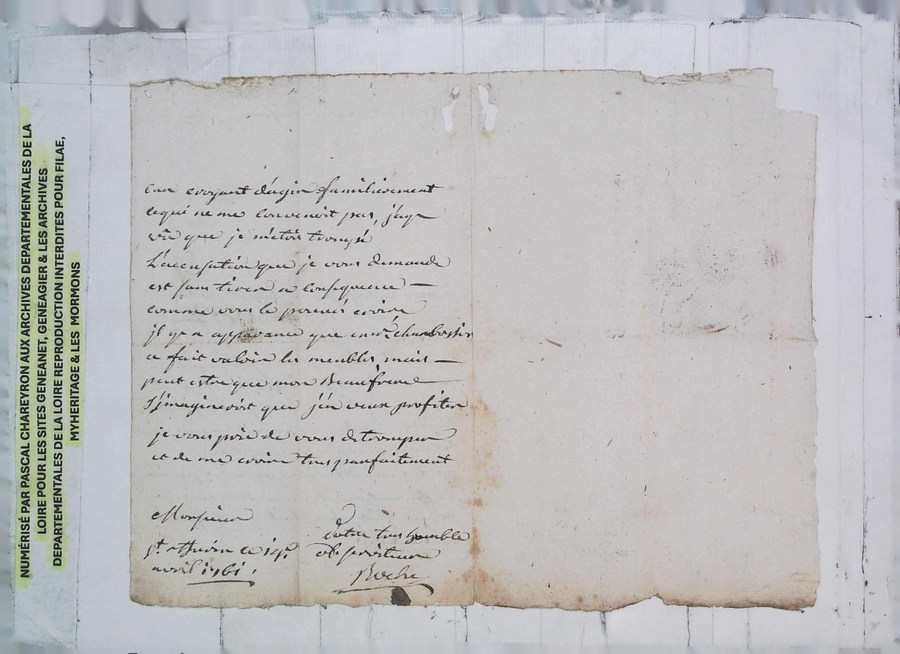 NUMÉRISÉ PAR PASCAL CHAREYRON AUX ARCHIVES DEPARTEMENTALES DE LA
LOIRE POUR LES SITES GENEANET, GENEAGIER & LES ARCHIVES
DEPARTEMENTALES DE LA LOIRE REPRODUCTION INTERDITES POUR FILAE,
MYHERITAGE & LES MORMONS
croyant d'agir familièrement
ce qui ne me convenoit pas, j'ay
vû que je m'etois trompé
L'accusation que je vous demande
est sans tirer a consequence —
comme vous le pouvés croire
il y a apparence que
a fait valoir les meubles mais —
peut estre que mon Beaufrere
s'jmagineroit que j'en veux profiter
je vous prie de vous detromper
et de me croire tres parfaitement
Monsieur
Votre tres humble
st. ce
obt serviteur
avril 1761.
Roche